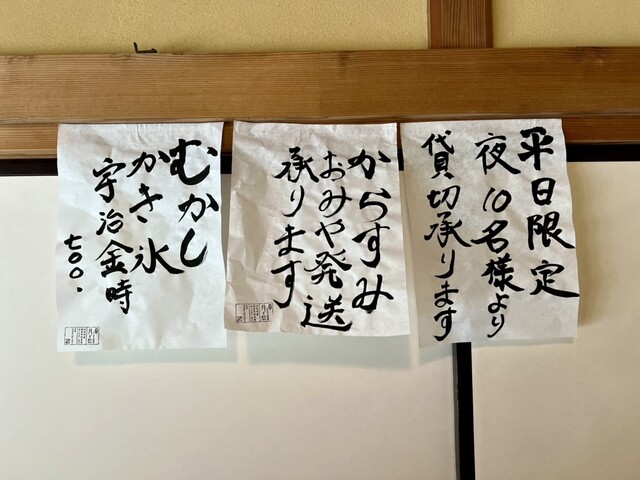 平日限定
夜10名様より
貸切承ります
からすみ
おみや発送
承ります
むかし
かき氷
宇治金時
七〇〇.